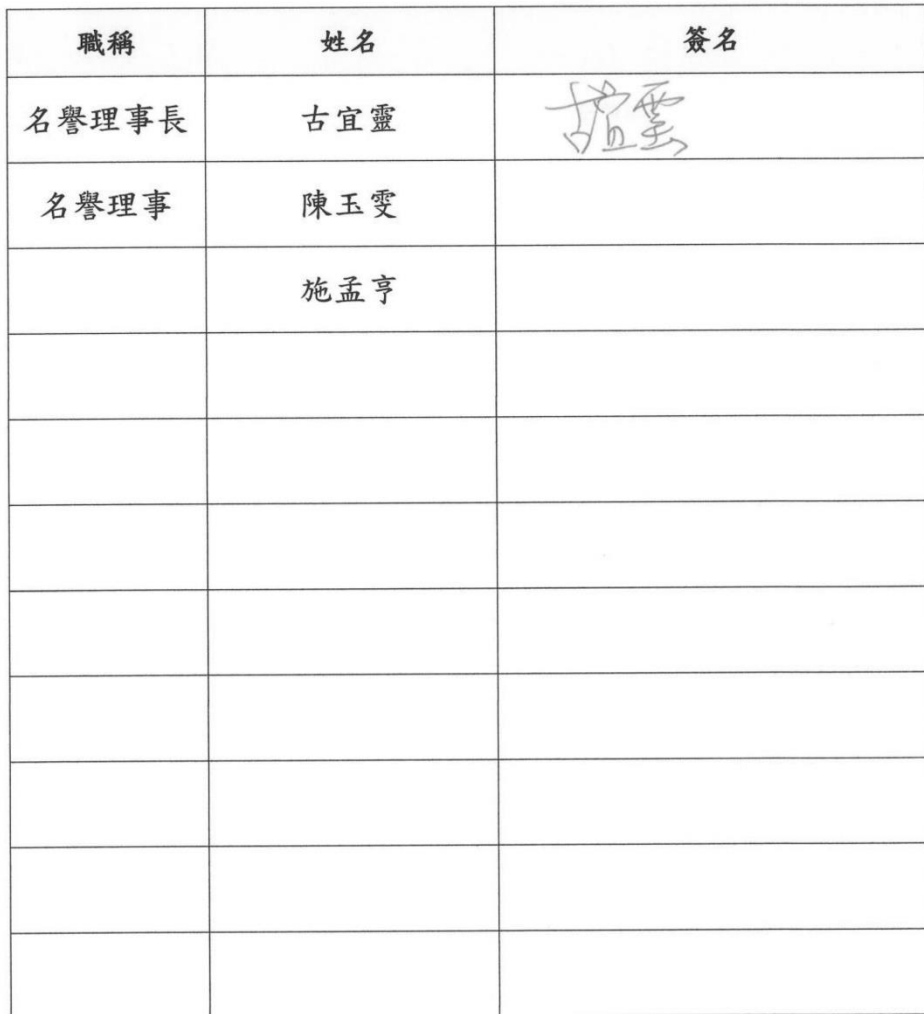 職稱 姓名 簽名
名譽理事長 古宜靈 古宜靈
名譽理事 陳玉雯
施孟亨